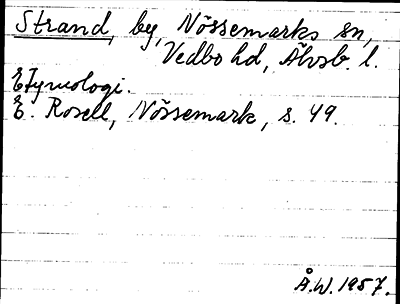 Strand, by, Nössemarks sn,
Vedbo hd, Älvsb. l.
Etymologi.
E. Rosell, Nössemark, s. 49.
Å.W. 1957.